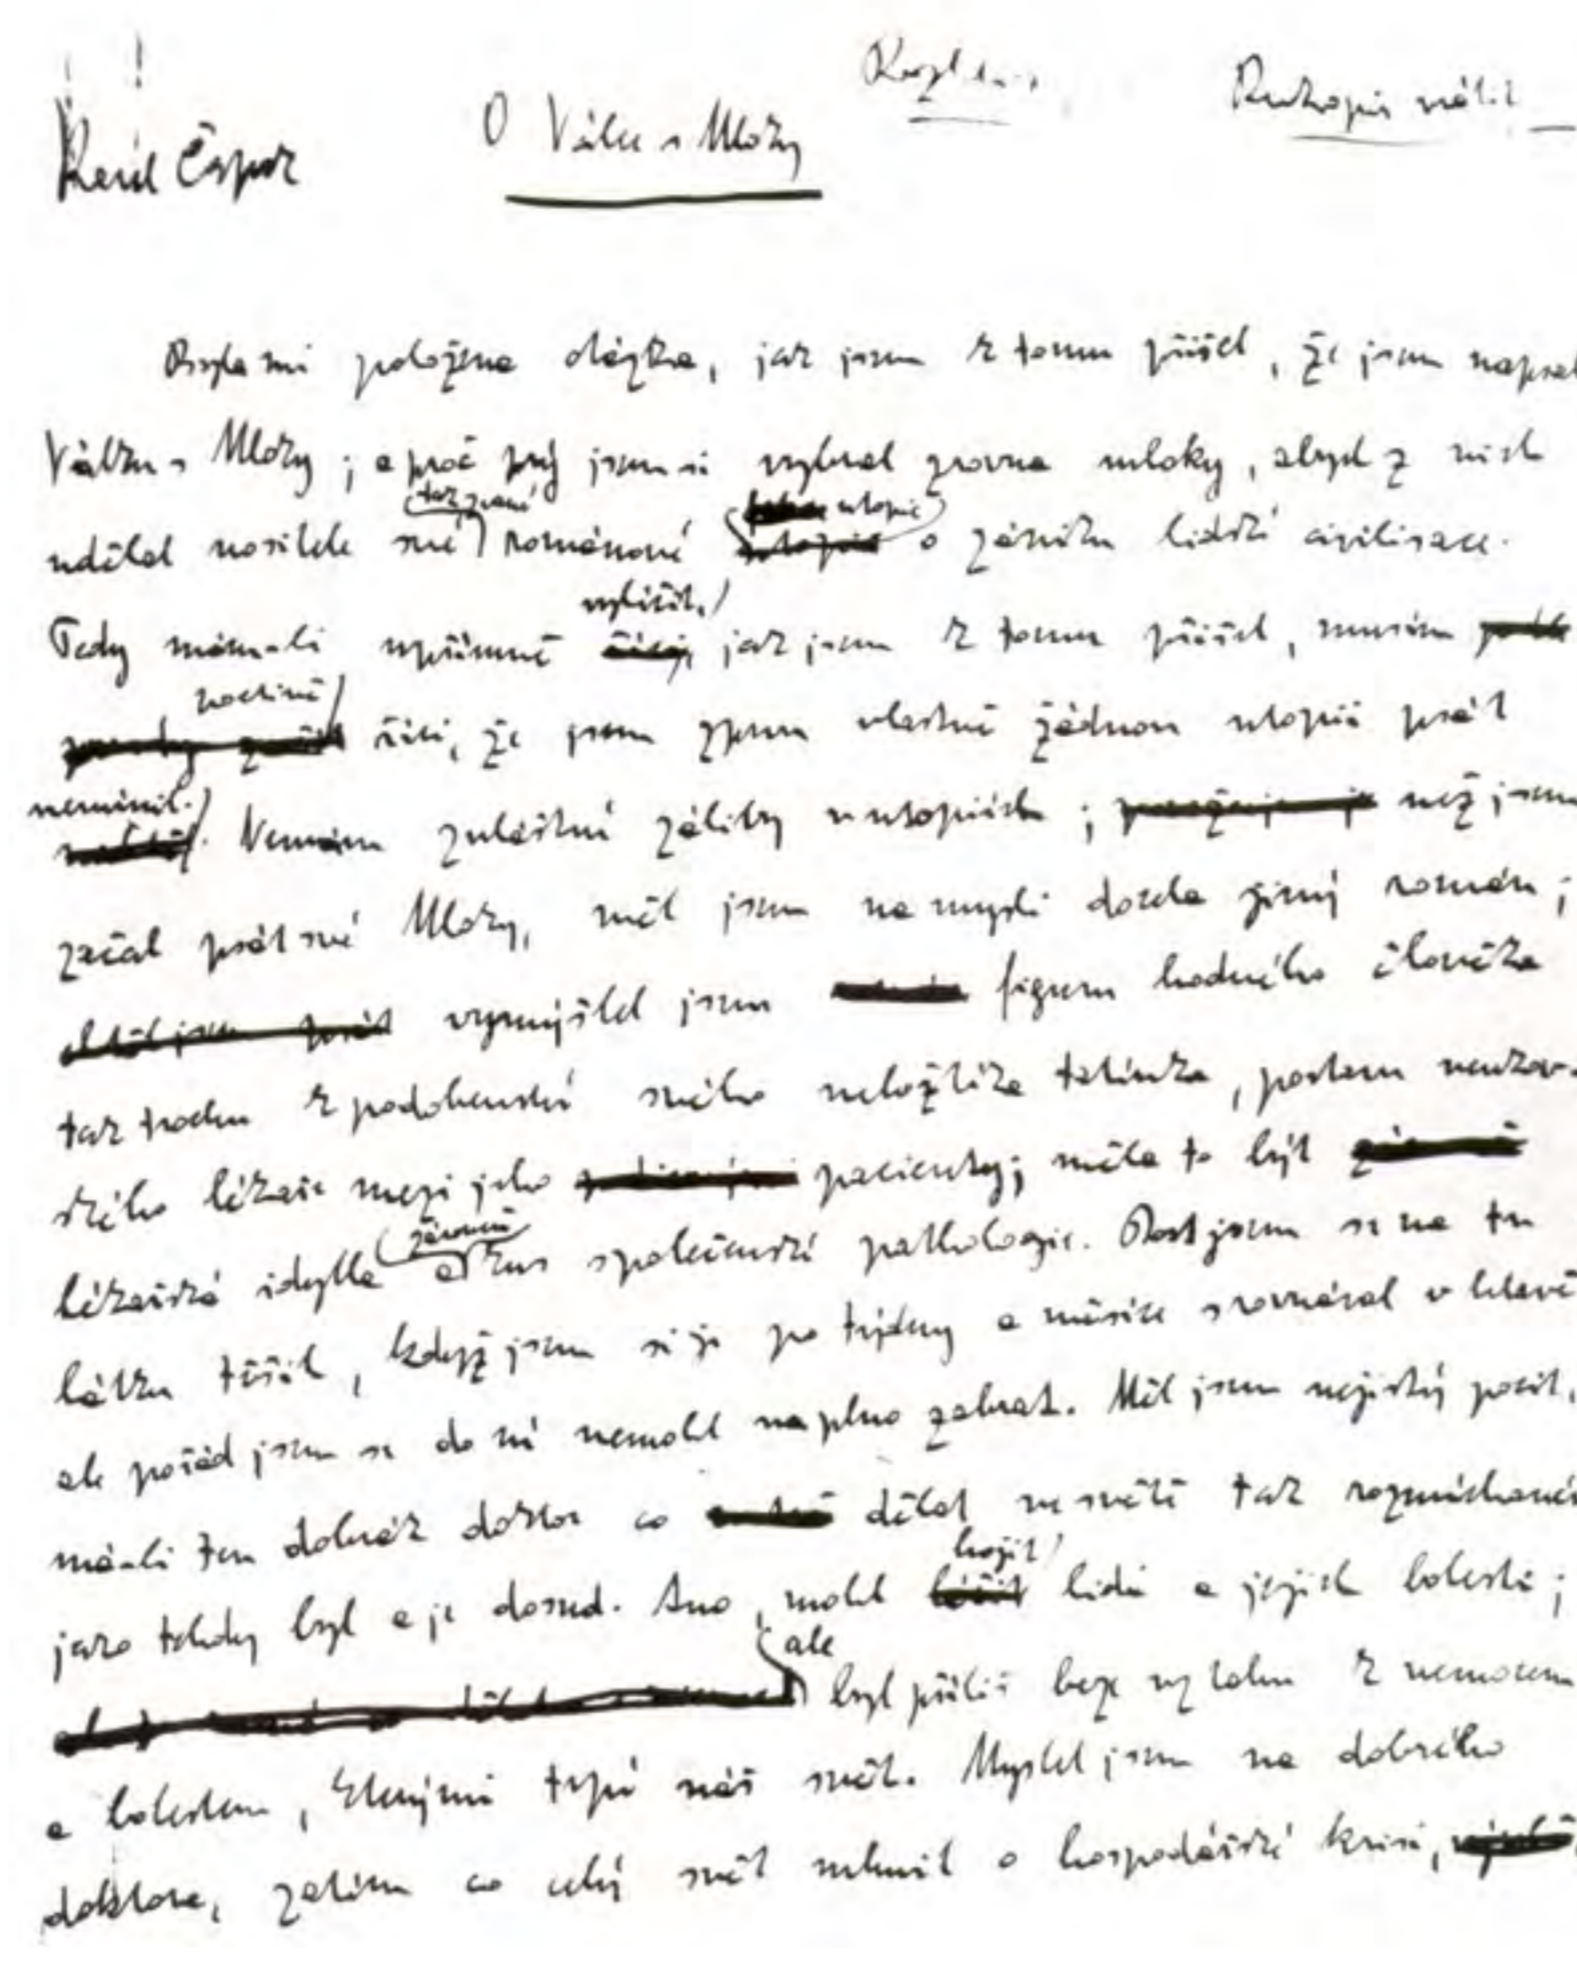 Karel Čapek
O Válce s Mloky
Rukopis
Byla mi položena otázka, jak jsem k tomu přišel, že jsem napsal
Válku s Mloky; a proč prý jsem si vybral zrovna mloky, abych z nich
tak zvané utopie
udělal nositele své románové o zániku lidské civilisace.
vylíčit,
Tedy mám-li upřímně jak jsem k tomu přišel, musím
poctivě
říci, že jsem zprvu vlastně žádnou utopii psát
nemínil.
Nemám zvláštní záliby v utopiích; než jsem
začal psát své Mloky, měl jsem na mysli docela jiný román;
vymýšlel jsem figuru hodného člověka
tak trochu k podobenství svého nebožtíka tatínka, postavu venkov-
ského lékaře mezi jeho pacienty; měla to být
zároveň
lékařská idylla a kus společenské pathologie. Dost jsem se na tu
látku těšil, když jsem si ji po týdny a měsíce srovnával v hlavě
ale pořád jsem se do ní nemohl naplno zabrat. Měl jsem nejistý pocit,
má-li ten dobrák doktor co dělat ve světě tak rozmíchaném
hojit
jako tehdy byl a je dosud. Ano, mohl lidi a jejich bolesti;
ale
byl příliš beze vztahu k nemocem
a bolestem, kterými trpí náš svět. Myslel jsem na dobrého
doktora, zatím co celý svět mluvil o hospodářské krisi,